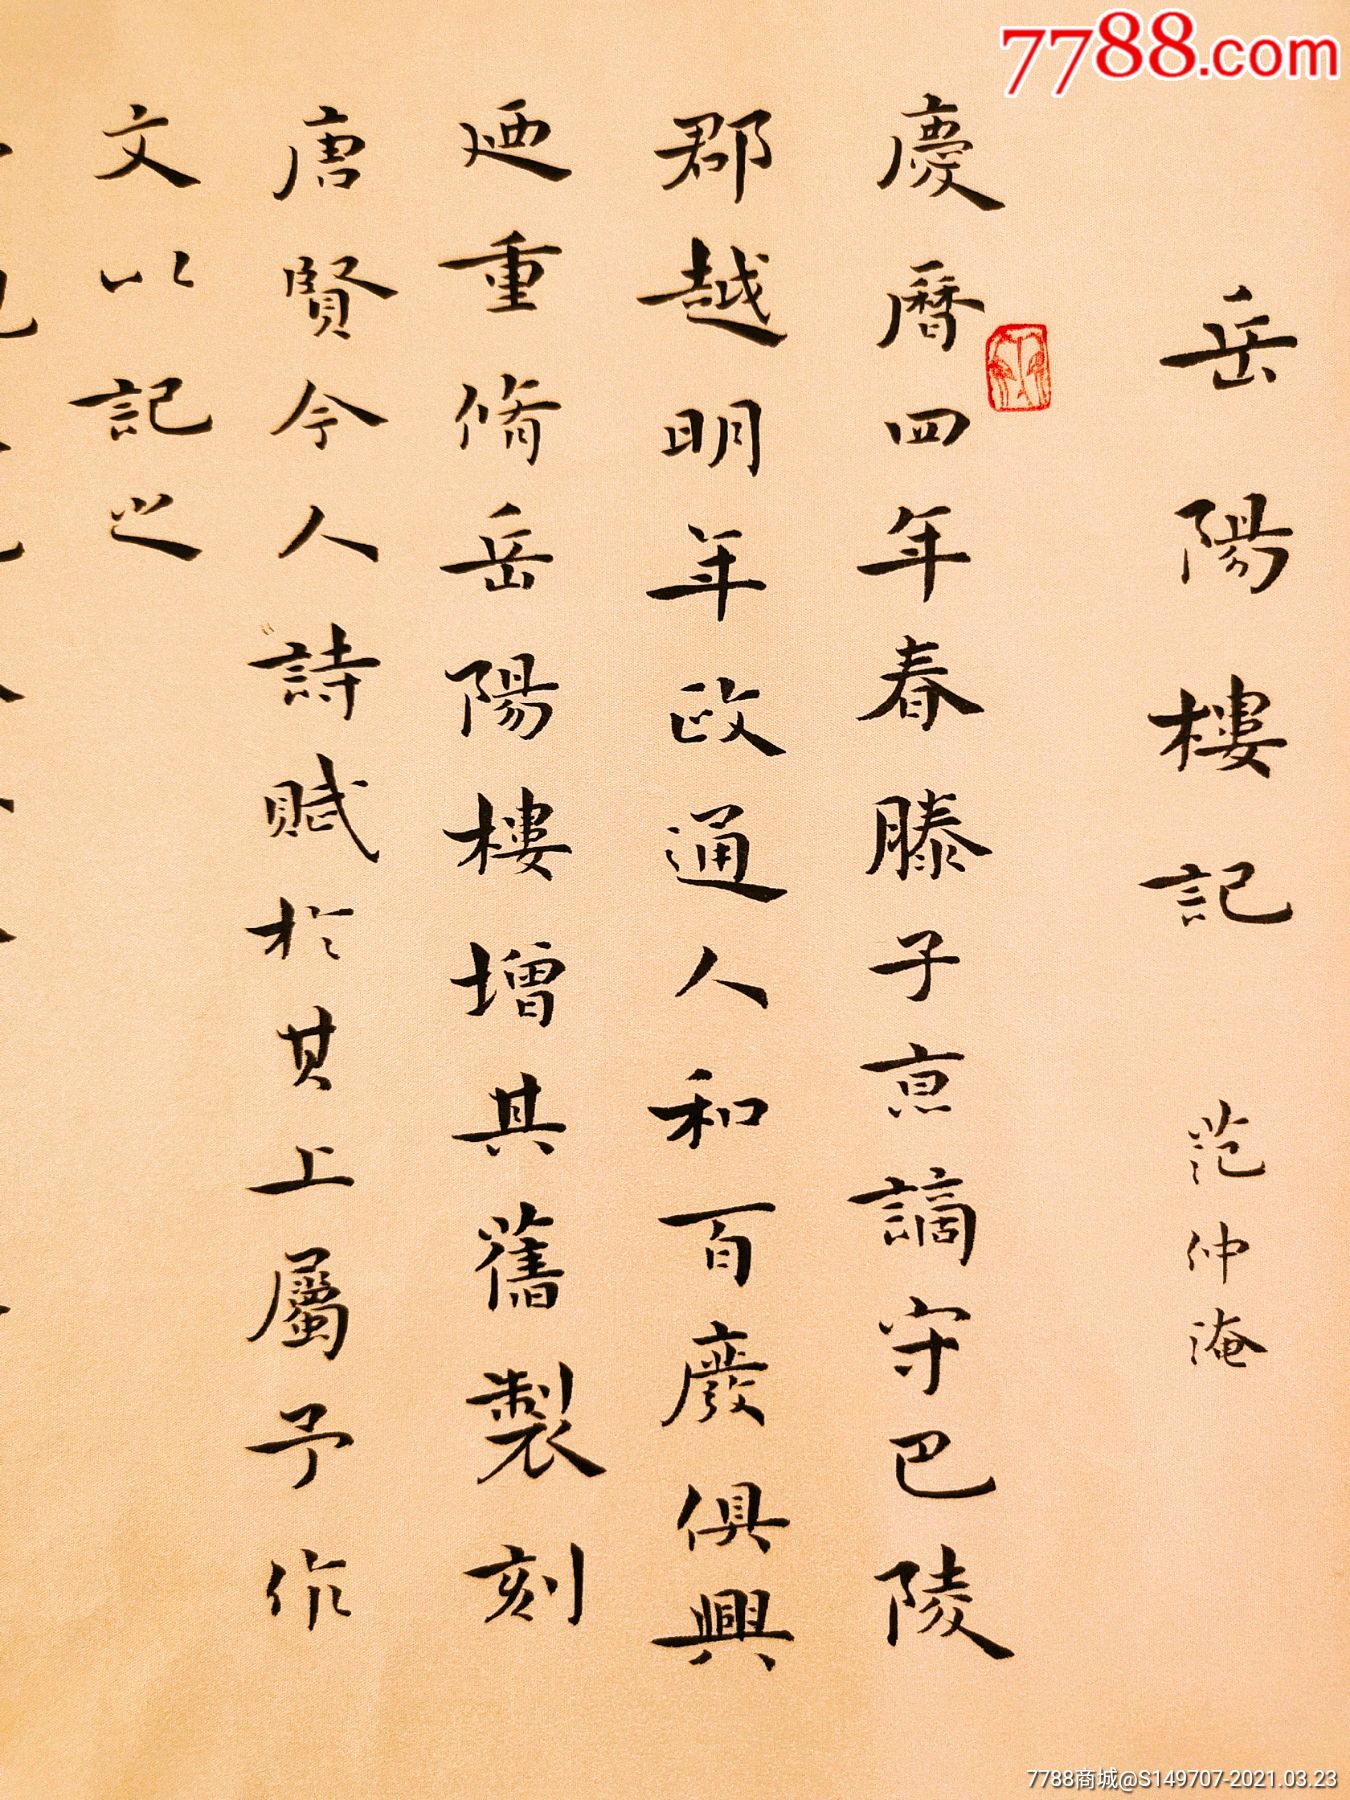 7788.com
岳陽樓記 范仲淹
慶曆四年春滕子京謫守巴陵
郡越明年政通人和百廢俱興
廼重脩岳陽樓增其舊製刻
唐賢今人詩賦於其上屬予作
文以記之
7788商城@S149707-2021.03.23